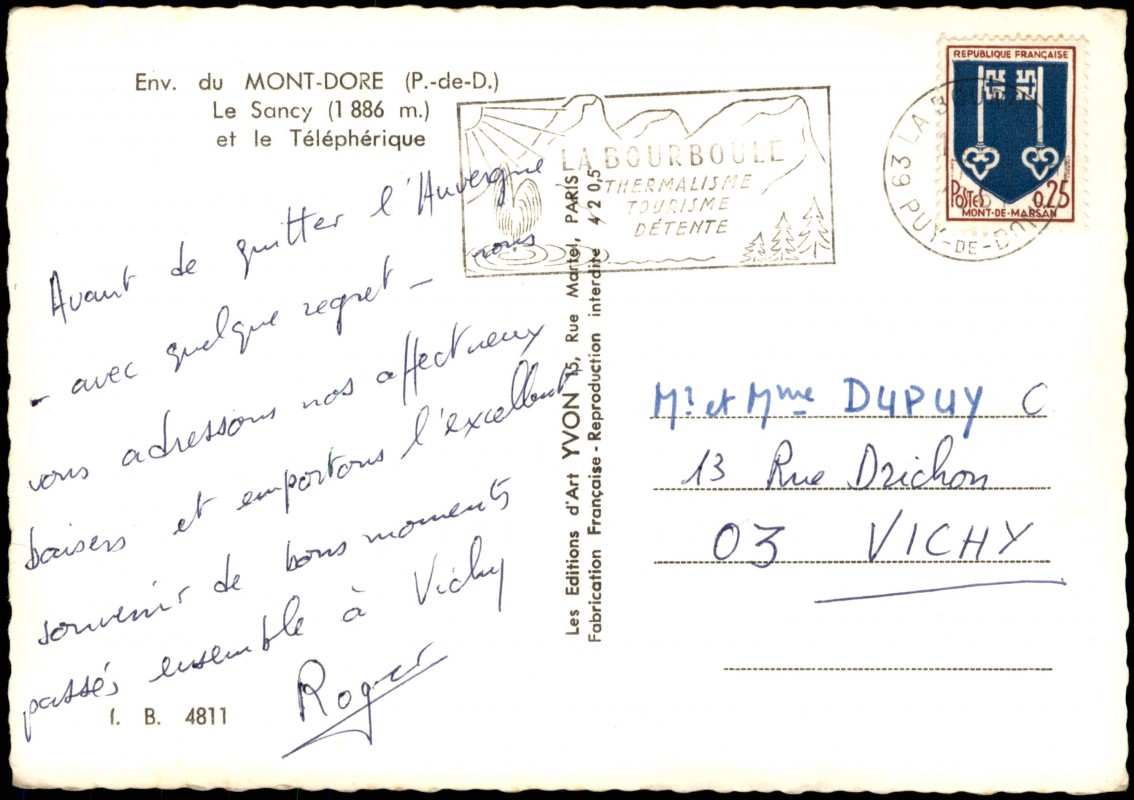 Env. du MONT-DORE (P.-de-D.)
Le Sancy (1 886 m.)
et le Téléphérique
Avant de quitter l'Auvergne
- avec quelque regret - nous
vous adressons nos affectueux
baisers et emportons l'excellent
souvenir de bons moments
passés ensemble à Vichy
Roger
f. B. 4811
Les Editions d'Art YVON 15, Rue Martel, PARIS
Fabrication Française - Reproduction interdite 4 2 0,5
LA BOURBOULE
THERMALISME
TOURISME
DÉTENTE
63 LA BOU
PUY-DE-DO
REPUBLIQUE FRANÇAISE
POSTES 0,25
MONT-DE-MARSAN
Mr et Mme DUPUY C
13 Rue Drichon
03 VICHY